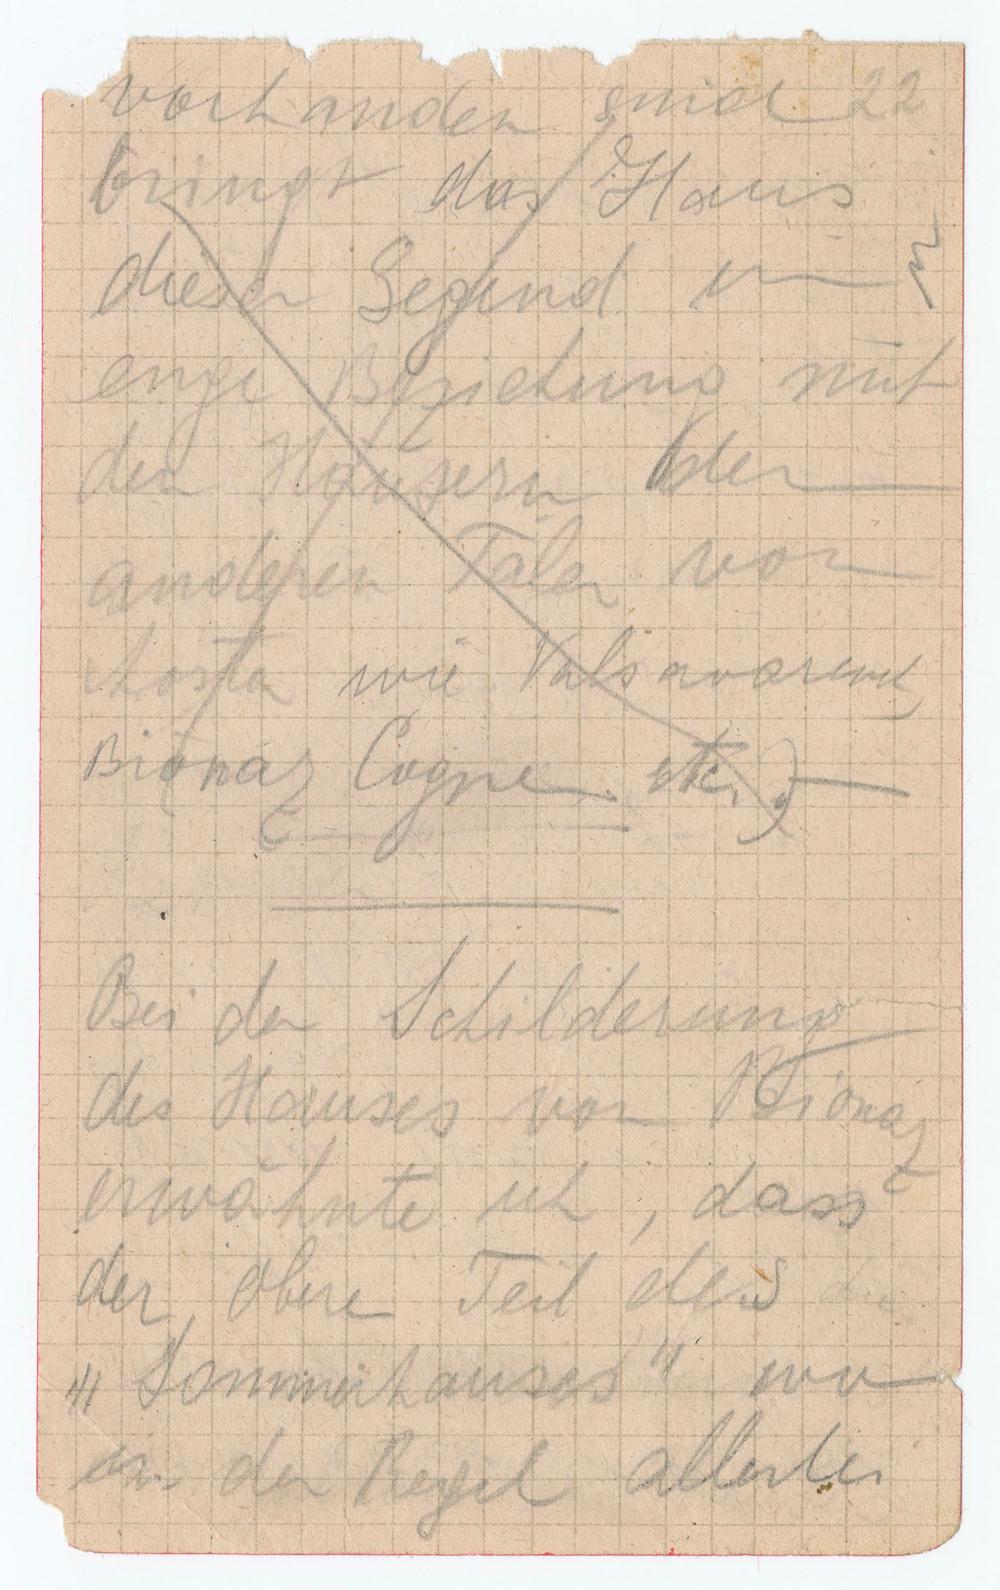 vorhanden sind 22
bringt das Haus
dieser Gegend in
enge Beziehung mit
den Häusern der
anderen Täler von
Aosta wie Valsavaranch,
Bionaz Cogne etc.)
Bei der Schilderung
des Hauses von Bionaz
erwähnte ich, dass
der obere Teil des
"Sommerhauses" wo
in der Regel allerlei